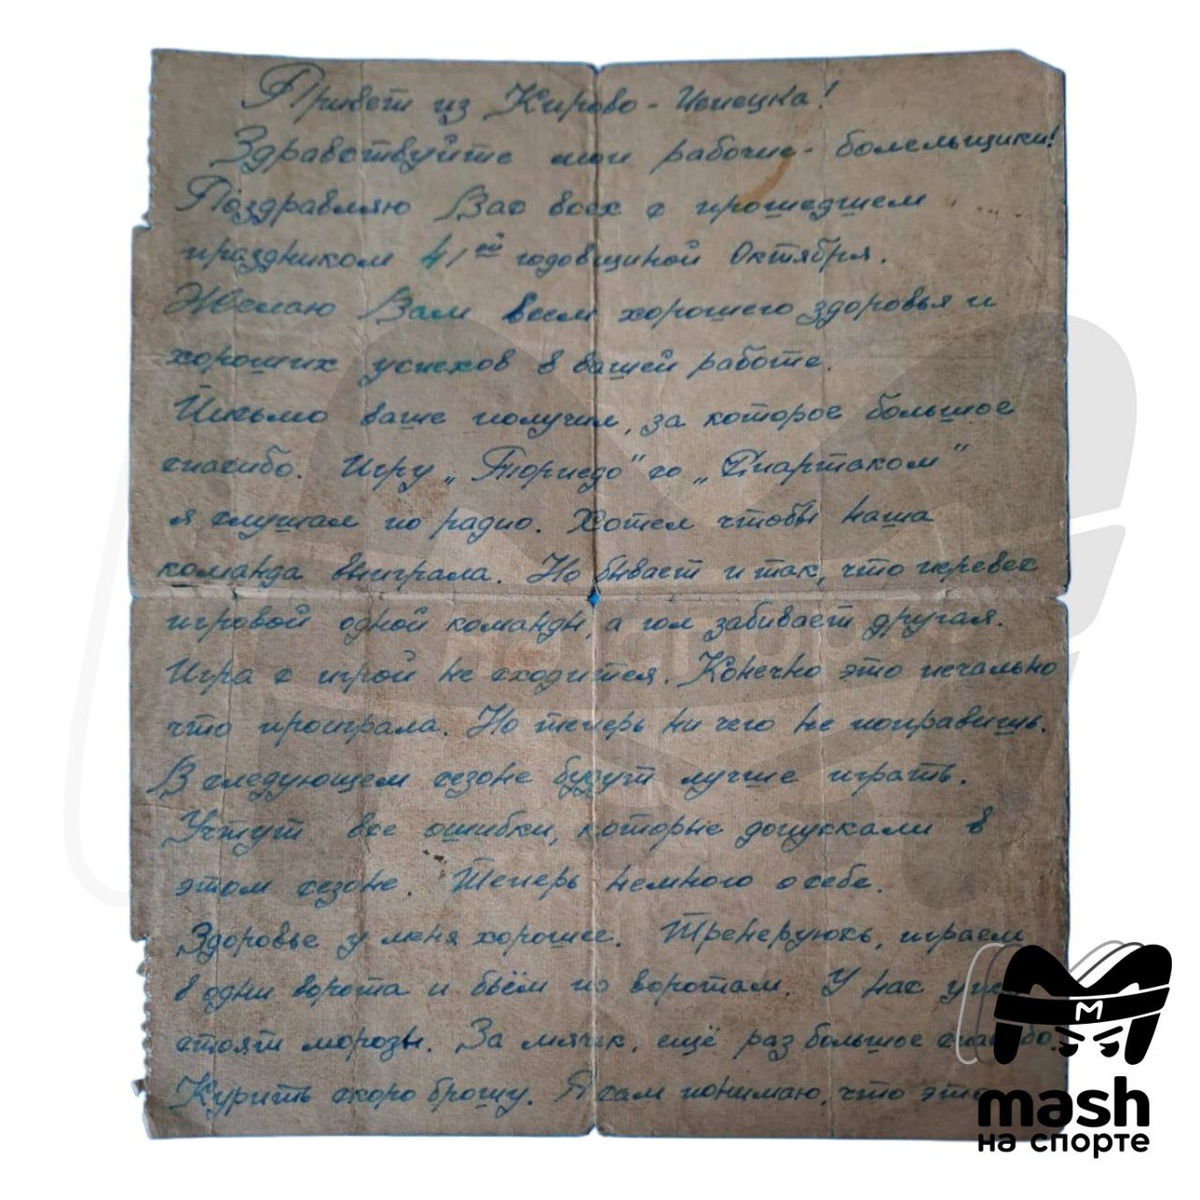 Привет из Кирово-Чепецка!
Здравствуйте мои рабочие-болельщики!
Поздравляю Вас всех с прошедшем
праздником 41ой годовщиной Октября.
Желаю Вам всем хорошего здоровья и
хороших успехов в вашей работе.
Письмо ваше получил, за которое большое
спасибо. Игру „Торпедо" со „Спартаком"
я слушал по радио. Хотел чтобы наша
команда выиграла. Но бывает и так, что перевес
игровой одной команды, а гол забивает другая.
Игра с игрой не сходится. Конечно это печально
что проиграла. Но теперь ни чего не поправишь.
В следующем сезоне будут лучше играть.
Учтут все ошибки, которые допускали в
этом сезоне. Теперь немного о себе.
Здоровье у меня хорошее. Тренеруюсь, играем
в одни ворота и бьём по воротам. У нас уже
стоят морозы. За мячик, ещё раз большое спасибо.
Курить скоро брошу. Я сам понимаю, что это
M
mash
на спорте